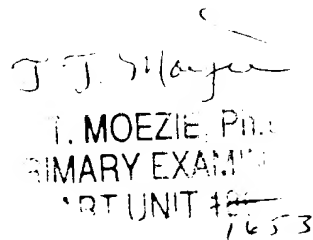 T. Moezie
T. MOEZIE, Ph.
RIMARY EXAMI
ART UNIT
1653